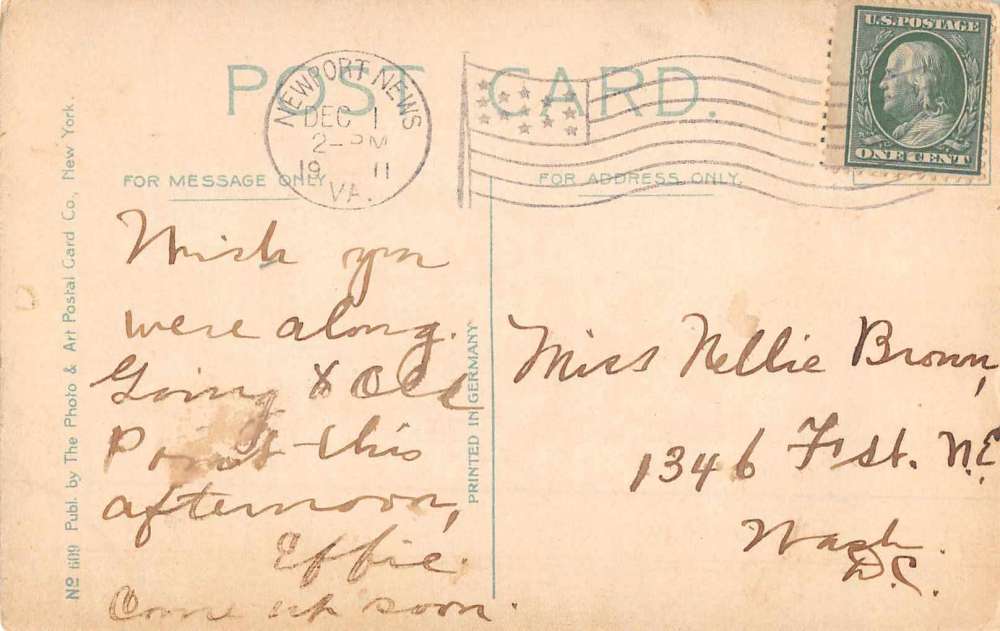 POST CARD.
NEWPORT NEWS
DEC 1
2-PM
19 11
VA.
U.S. POSTAGE
ONE CENT
FOR MESSAGE ONLY.
FOR ADDRESS ONLY.
Wish you
were along.
Going to Old
Point this
afternoon,
Effie.
Come up soon.
Miss Nellie Brown,
1346 F st. N.E
Wash.
D.C.
PRINTED IN GERMANY
No 609 Publ. by The Photo & Art Postal Card Co., New York.